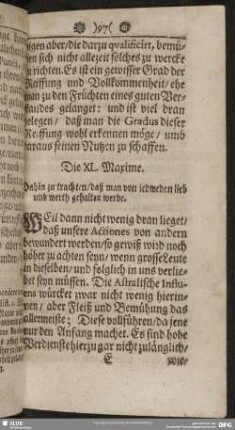 )97(
igen aber/die darzu qvalificirt, bemü-
en sich nicht allezeit solches zu wercke
u richten. Es ist ein gewisser Grad der
Reiffung und Vollkommenheit/ ehe
man zu den Früchten eines guten Ver-
standes gelanget: und ist viel dran
gelegen/ daß man die Gradus dieser
Reiffung wohl erkennen möge/ umb
daraus seinen Nutzen zu schaffen.
Die XL. Maxime.
Dahin zu trachten/daß man von iedweden lieb
und werth gehalten werde.
WEil dann nicht wenig dran lieget/
daß unsere Actiones von andern
bewundert werden/so gewiß wird noch
höher zu achten seyn/ wenn grosse Leute
in dieselben/ und folglich in uns verlie-
bet seyn müssen. Die Astralische Influ-
ens würcket zwar nicht wenig hierin-
nen/ aber Fleiß und Bemühung das
allermeiste; Diese vollführen/da jene
nur den Anfang machet. Es sind hohe
Verdienste hierzu gar nicht zulänglich/
E